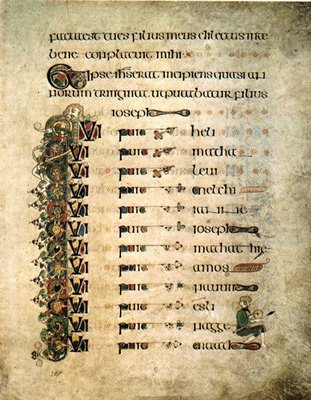 facta est tu es filius meus dilectus in te
bene conplacuit mihi
Et ipse ihs erat incipiens quasi an
norum triginta ut putabatur filius
ioseph
QUI fuit heli
QUI fuit matha
QUI fuit leui
QUI fuit melchi
QUI fuit
QUI fuit ioseph
QUI fuit mathathie
QUI fuit amos
QUI fuit
QUI fuit esli
QUI fuit nagge
QUI fuit maath